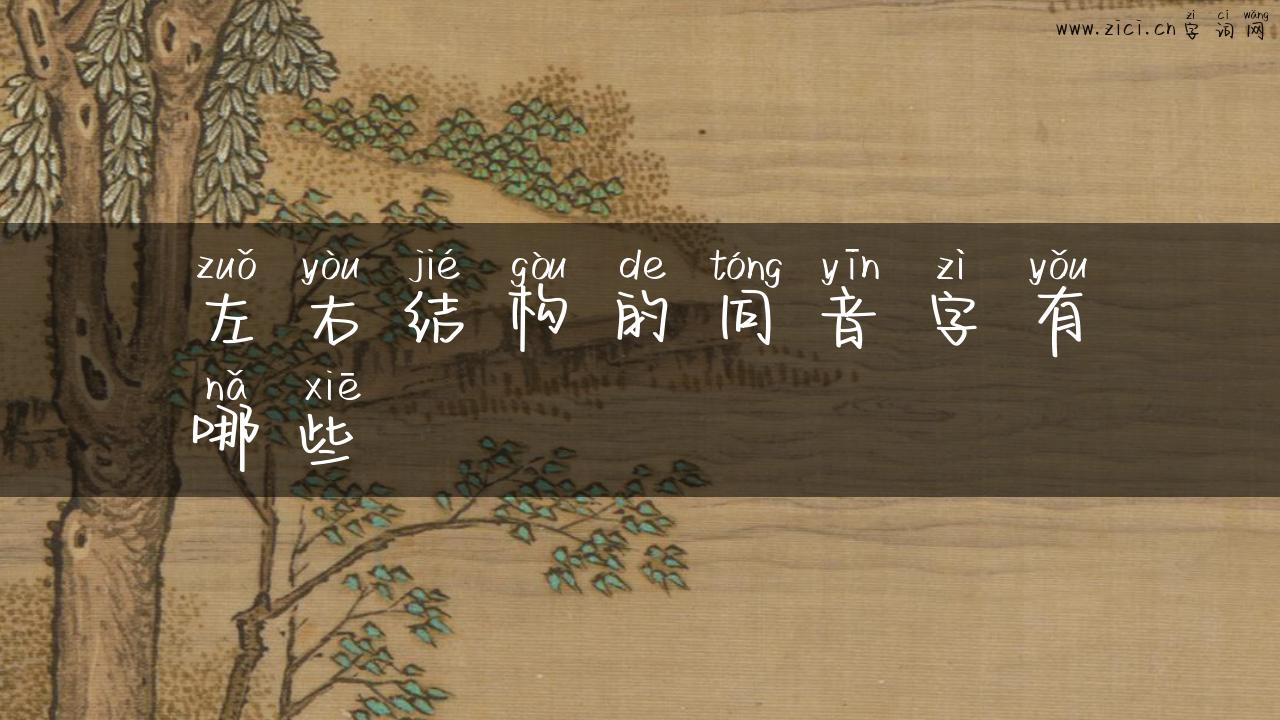 zì cí wǎng
www.zici.cn 字词网
zuǒ yòu jié gòu de tóng yīn zì yǒu
左右结构的同音字有
nǎ xiē
哪些